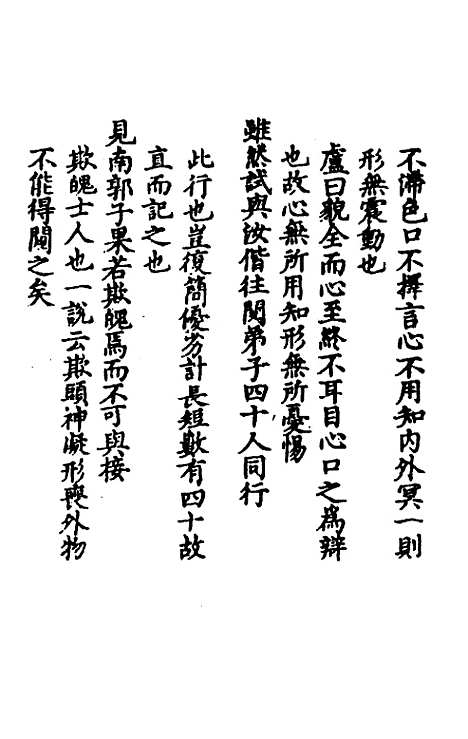 不滯色口不擇言心不用知内外冥一則
形無震動也
盧曰貌全而心至終不耳目心口之爲辯
也故心無所用知形無所憂惕
雖然試與汝偕往閱弟子四十人同行
此行也豈復簡優劣計長短數有四十故
直而記之也
見南郭子果若欺魄焉而不可與接
欺魄土人也一說云欺頭神凝形喪外物
不能得闚之矣